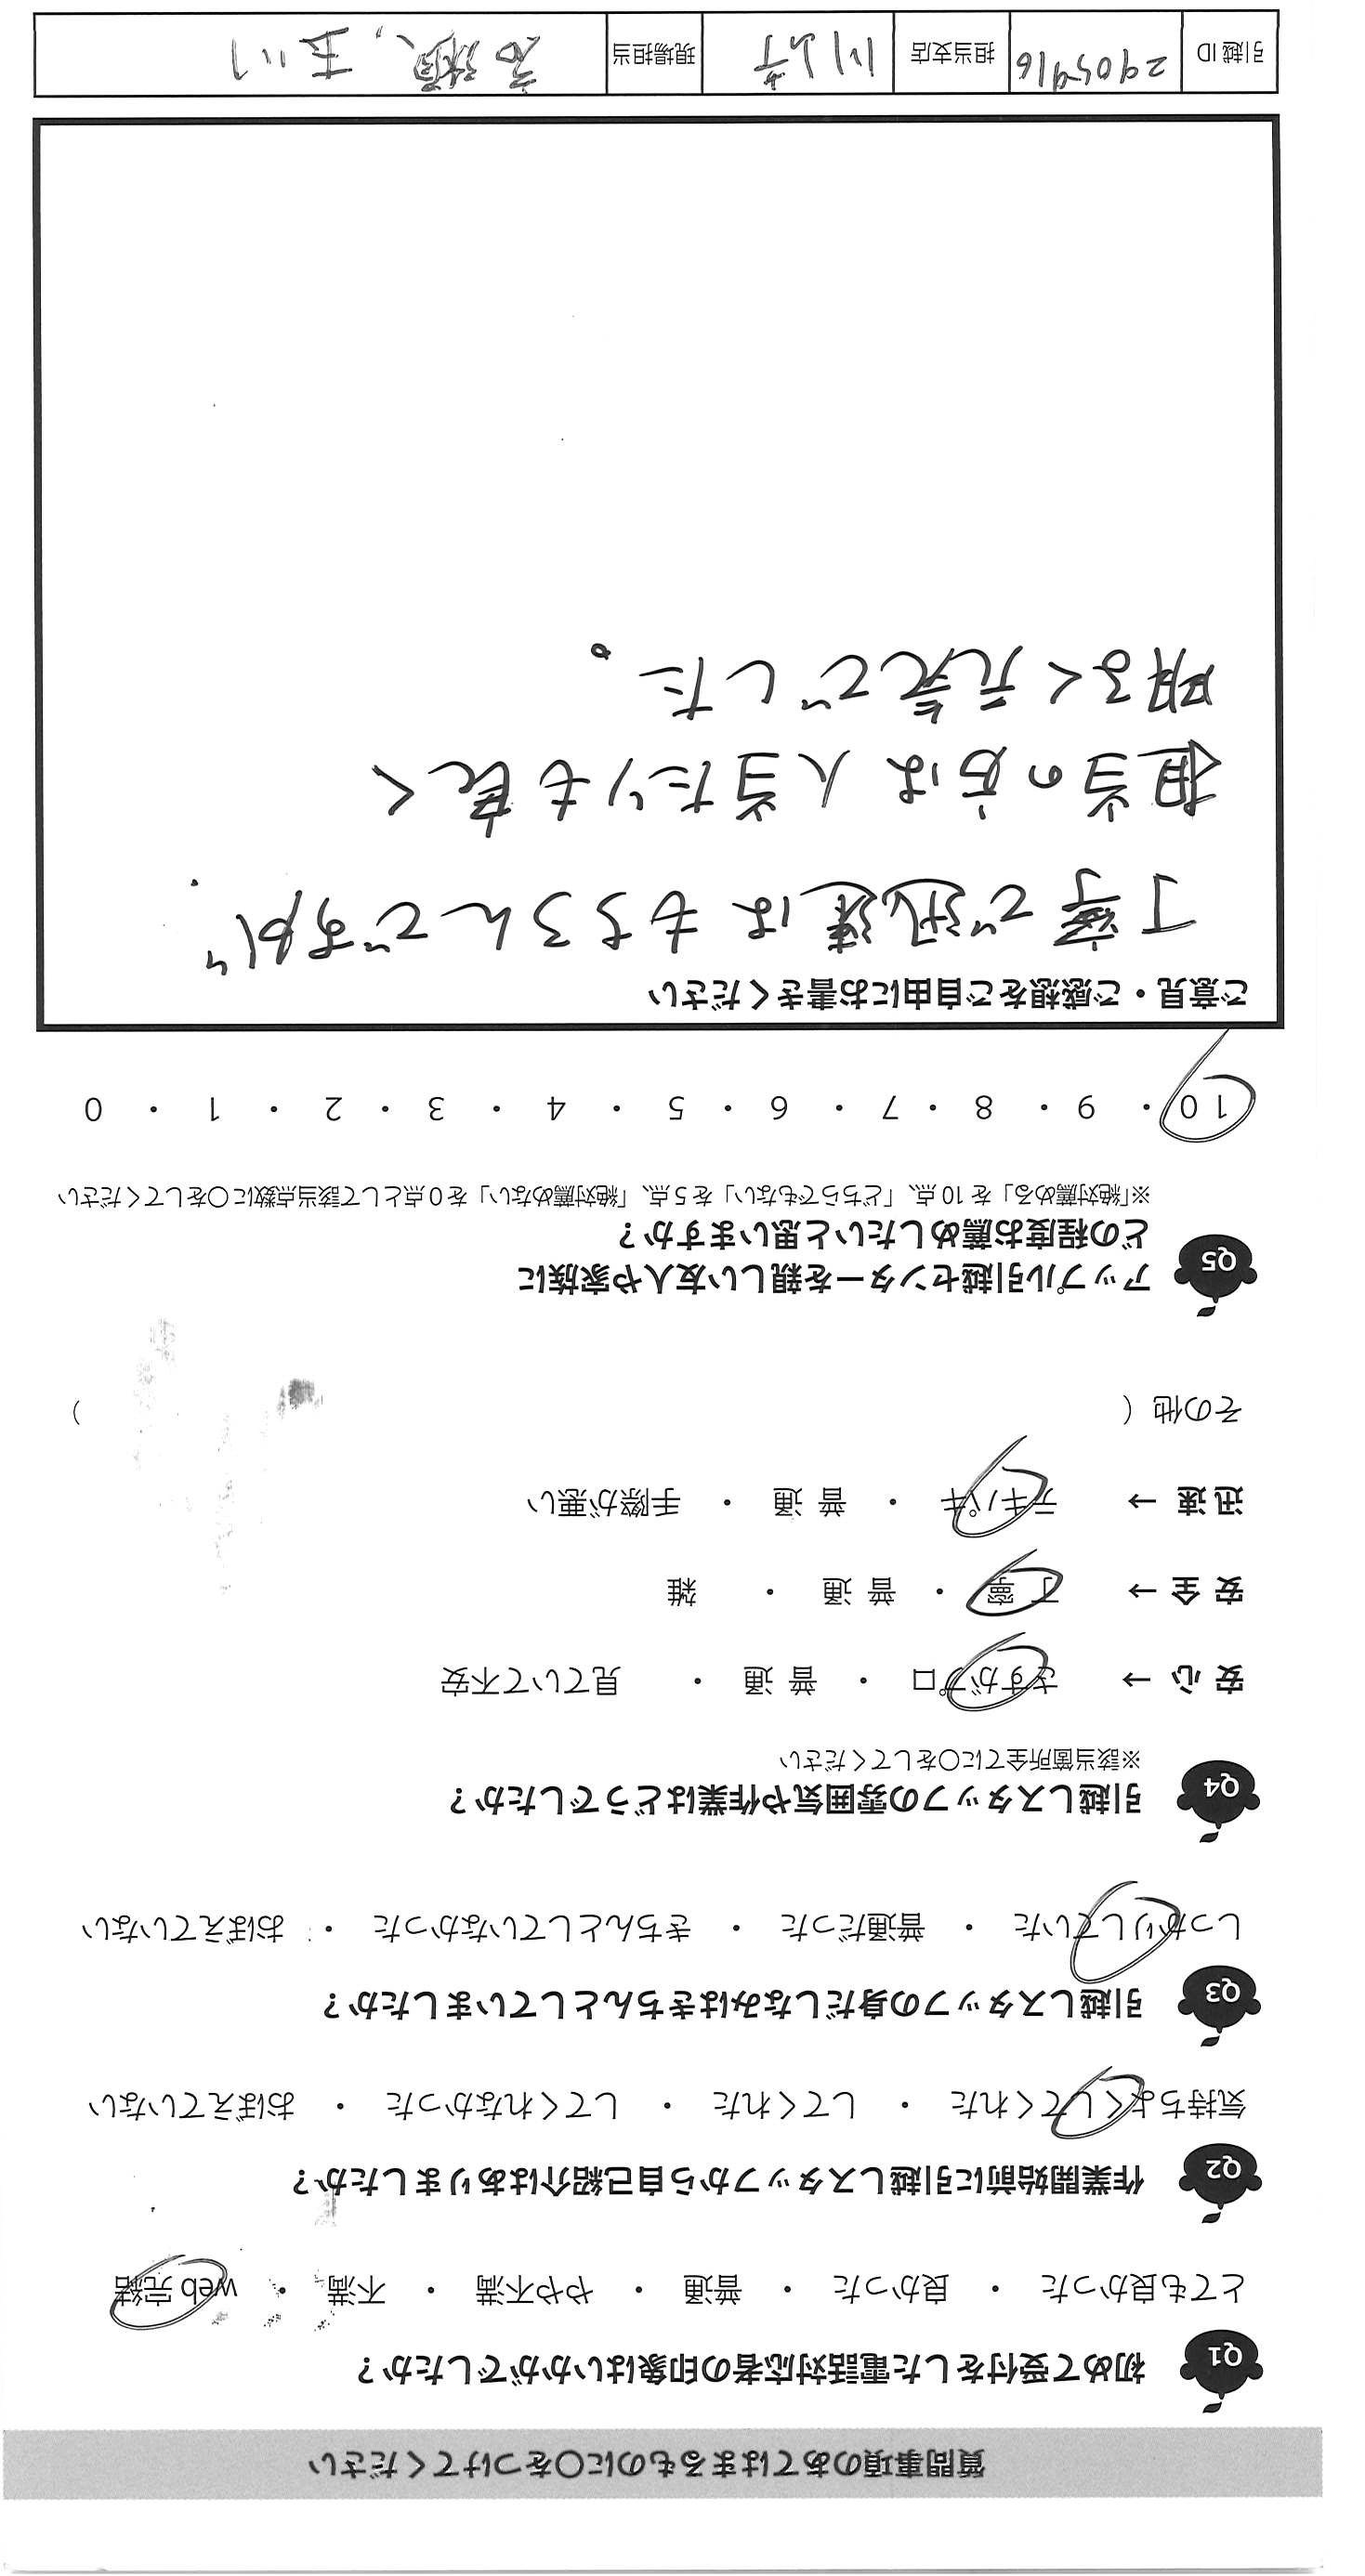 質問事項のあてはまるものに〇をつけてください
Q1 初めて受付をした電話対応者の印象はいかがでしたか？
とても良かった ・ 良かった ・ 普通 ・ やや不満 ・ 不満 ・ web 完結
Q2 作業開始前に引越しスタッフから自己紹介はありましたか？
気持ちよくしてくれた ・ してくれた ・ してくれなかった ・ おぼえていない
Q3 引越しスタッフの身だしなみはきちんとしていましたか？
しっかりしていた ・ 普通だった ・ きちんとしていなかった ・ おぼえていない
Q4 引越しスタッフの雰囲気や作業はどうでしたか？
※該当箇所全てに〇をしてください
安心 → さすがプロ ・ 普通 ・ 見ていて不安
安全 → 丁寧 ・ 普通 ・ 雑
迅速 → テキパキ ・ 普通 ・ 手際が悪い
その他（ ）
Q5 アップル引越センターを親しい友人や家族に
どの程度お薦めしたいと思いますか？
※「絶対薦める」を 10 点、「どちらでもない」を 5 点、「絶対薦めない」を 0 点として該当点数に〇をしてください
10 ・ 9 ・ 8 ・ 7 ・ 6 ・ 5 ・ 4 ・ 3 ・ 2 ・ 1 ・ 0
ご意見・ご感想をご自由にお書きください
丁寧で迅速はもちろんですが、
担当の方は人当たりも良く
明るく元気でした。
引越 ID 2905916 担当支店 川崎 現場担当 玉川